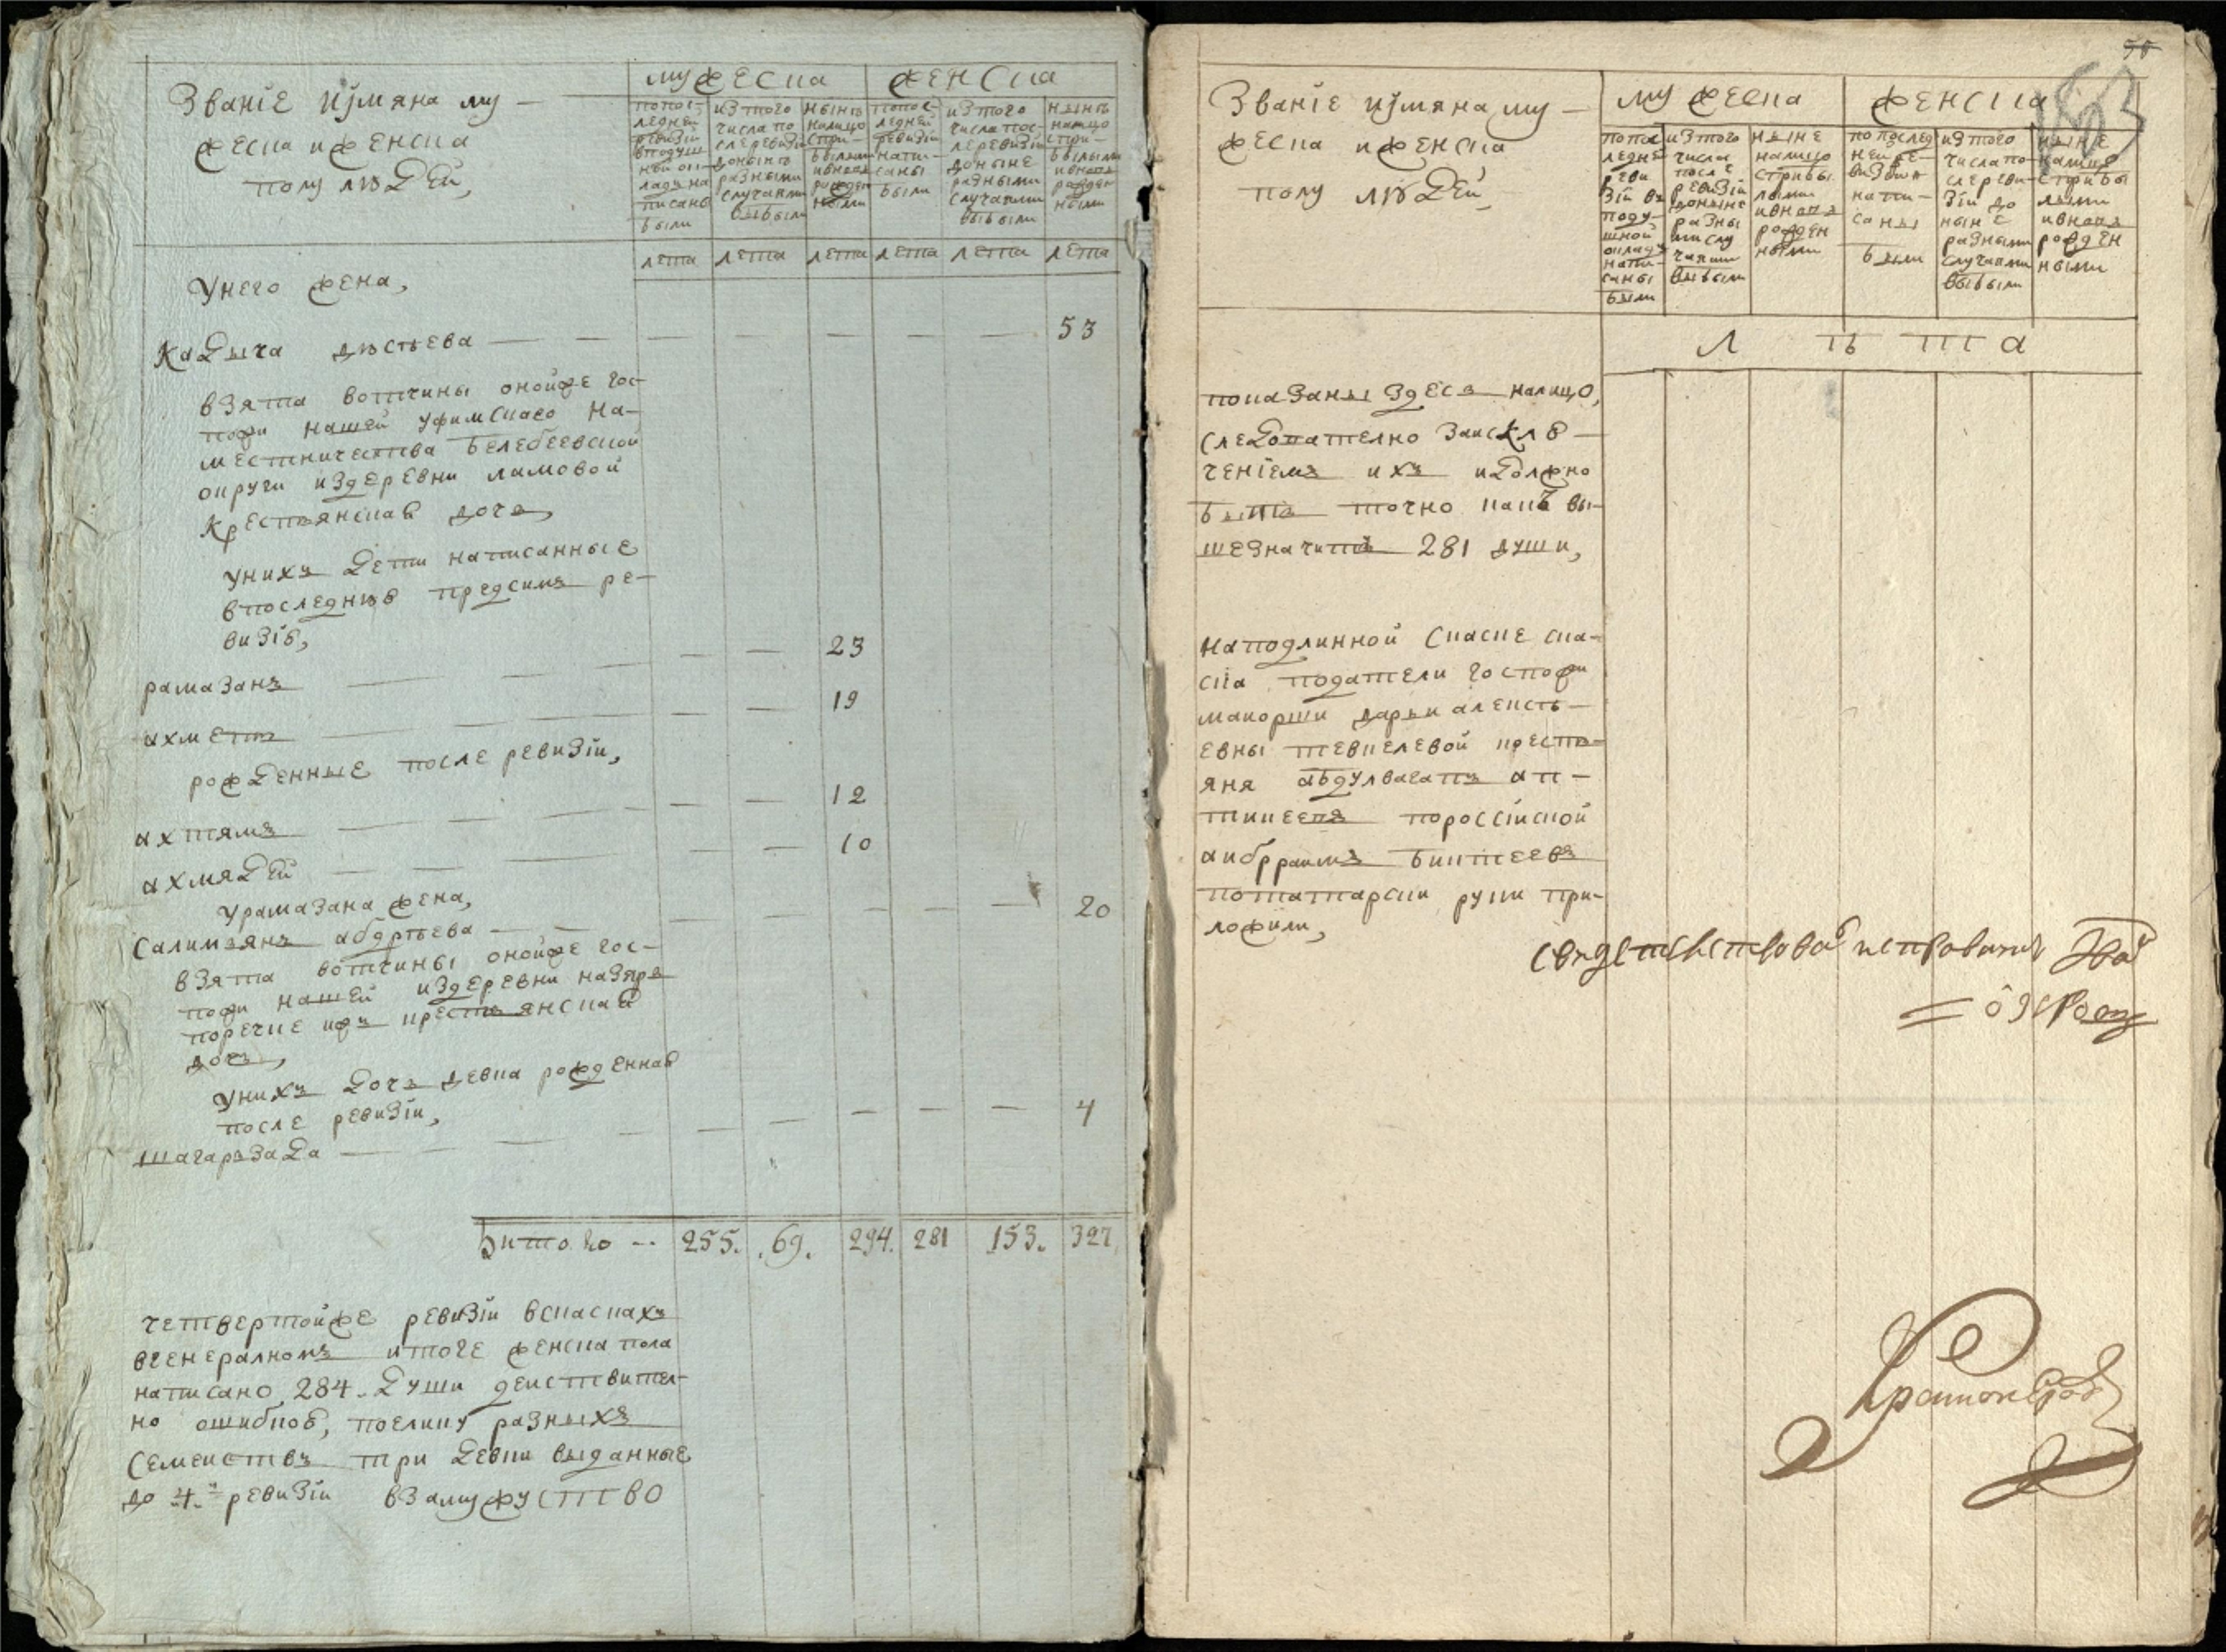 Званїе иймяна му-
жеска иженска
полу людей,
мужеска
женска
попос-
ледней
ревизїи
вподуш
ной ок-
ладъ на
писанъ
были
изтого
числа по
слеревизїи
донынъ
разными
случаями
выбыли
нынъ
налицо
спри-
былыми
ивновь
рожден
ными
попос-
ледней
ревизїи
напи-
саны
были
изтого
числа пос-
леревизїи
доныне
разными
случаями
выбыли
нынъ
налицо
спри-
былыми
ивновь
рожден
ными
лета лета лета лета лета лета
Унего жена,
Кадыча дюстьева — 53
взята вотчины онойже гос-
пожи нашей уфимскаго на-
местничества белебеевской
округи издеревни ламовой
крестьянская дочь,
унихъ дети написанные
впоследнюю предсимъ ре-
визїю,
рамазанъ — 23
ахметъ — 19
рожденные после ревизїи,
ахтямъ — 12
ахмядей — 10
урамазана жена,
Салимзянъ абдртьева — 20
взята вотчины онойже гос-
пожи нашей издеревни назяръ
поречие ижъ крестьянская
дочь,
унихъ дочь девка рожденная
после ревизїи,
шагарзада — 4
Витого -- 255. 69. 294. 281 153. 327
четвертойже ревизїи вскаскахъ
вгенералномъ итоге женска пола
написано 284. души действител-
но ошибкою, поелику разныхъ
семействъ три девки выданные
до 4.й ревизїи взамужство
58
Званїе иймяна му-
жеска иженска
полу людей,
мужеска
женска
попос
ледне
реви
зїи въ
поду-
шной
окладъ
напи-
саны
были
изтого
числа
после
ревизїи
донынъ
разны
ми слу
чаями
выбыли
ныне
налицо
стрибы
лыми
ивновь
рожден
ными
попослед
ней ре-
визїи
напи-
саны
были
изтого
числа по-
слереви-
зїи до
ныне
разными
случаями
выбыли
ныне
налицо
стрибы
лыми
ивновь
рожден
ными
лъта
показаны здесь налицо,
следователно заисклю-
ченїемъ ихъ идолжно
быть точно какъ вы-
шезначитъ 281 души,
Наподлинной скаске ска-
ска податели госпожи
маиорши дарьи алексъ-
евны тевкелевой кресть-
яня абдулвагапъ ап-
тикеевъ пороссїйской
аибрраимъ биктеевъ
потатарски руки при-
ложили,